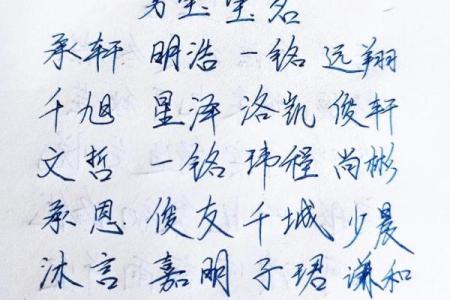 男宝宝名
承轩 明浩 一铭 远翔
千旭 星泽 洛凯 俊轩
文哲 一铭 玮程 尚彬
承恩 俊友 千城 少晨
沐言 嘉明 子珺 谦和